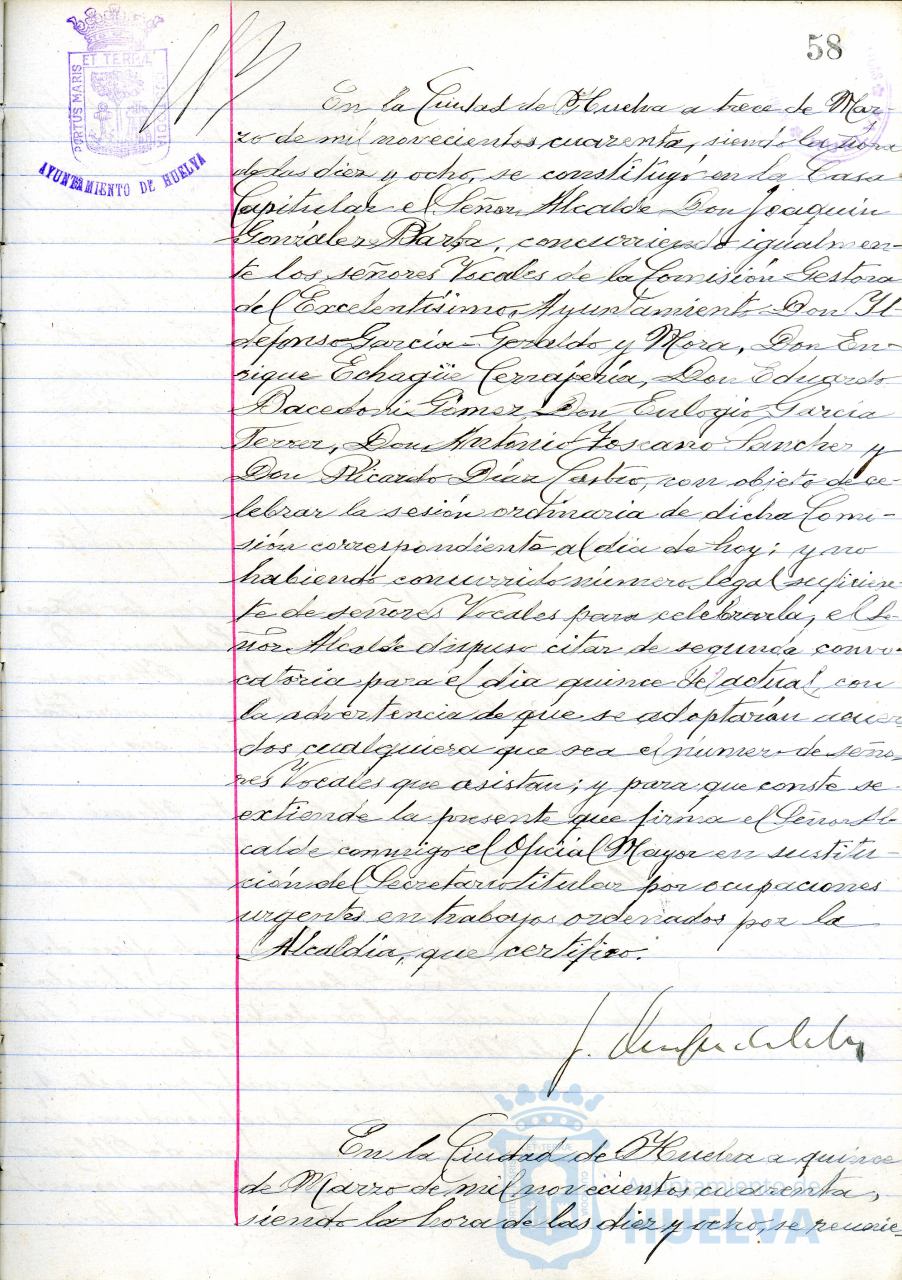 58
PORTUS MARIS ET TERRÆ CUSTODIA
AYUNTAMIENTO DE HUELVA
En la Ciudad de Huelva a trece de Mar-
zo de mil novecientos cuarenta, siendo la hora
de las diez y ocho, se constituyó en la Casa
Capitular el Señor Alcalde Don Joaquín
González Barba, concurriendo igualmen-
te los señores Vocales de la Comisión Gestora
del Excelentísimo Ayuntamiento Don Il-
defonso García-Geraldo y Mora, Don En-
rique Echagüe Cerrajería, Don Eduardo
Bacedoni Gómez, Don Eulogio García
Ferrer, Don Antonio Toscano Sanchez y
Don Ricardo Díaz Castro, con objeto de ce-
lebrar la sesión ordinaria de dicha Comi-
sión correspondiente al dia de hoy; y no
habiendo concurrido número legal suficien-
te de señores Vocales para celebrarla, el Se-
ñor Alcalde dispuso citar de segunda convo-
catoria para el dia quince del actual, con
la advertencia de que se adoptarán acuer-
dos cualquiera que sea el número de seño-
res Vocales que asistan; y para que conste se
extiende la presente que firma el Señor Al-
calde conmigo el Oficial Mayor en sustitu-
ción del Secretario titular por ocupaciones
urgentes en trabajos ordenados por la
Alcaldía, que certifico.
En la Ciudad de Huelva a quince
de Marzo de mil novecientos cuarenta,
siendo la hora de las diez y ocho, se reunie-
Ayuntamiento de
HUELVA